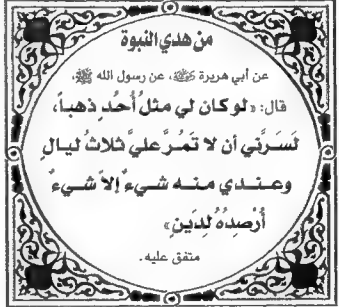 من هدي النبوة
عن أبي هريرة رضي الله عنه، عن رسول الله ﷺ،
قال: «لو كان لي مثل أُحُد ذهباً،
لَسَرَّني أن لا تَمُرَّ عليَّ ثلاثُ ليالٍ
وعندي منه شيءٌ إلا شيءٌ
أُرْصِدُهُ لِدَينٍ»
متفق عليه.